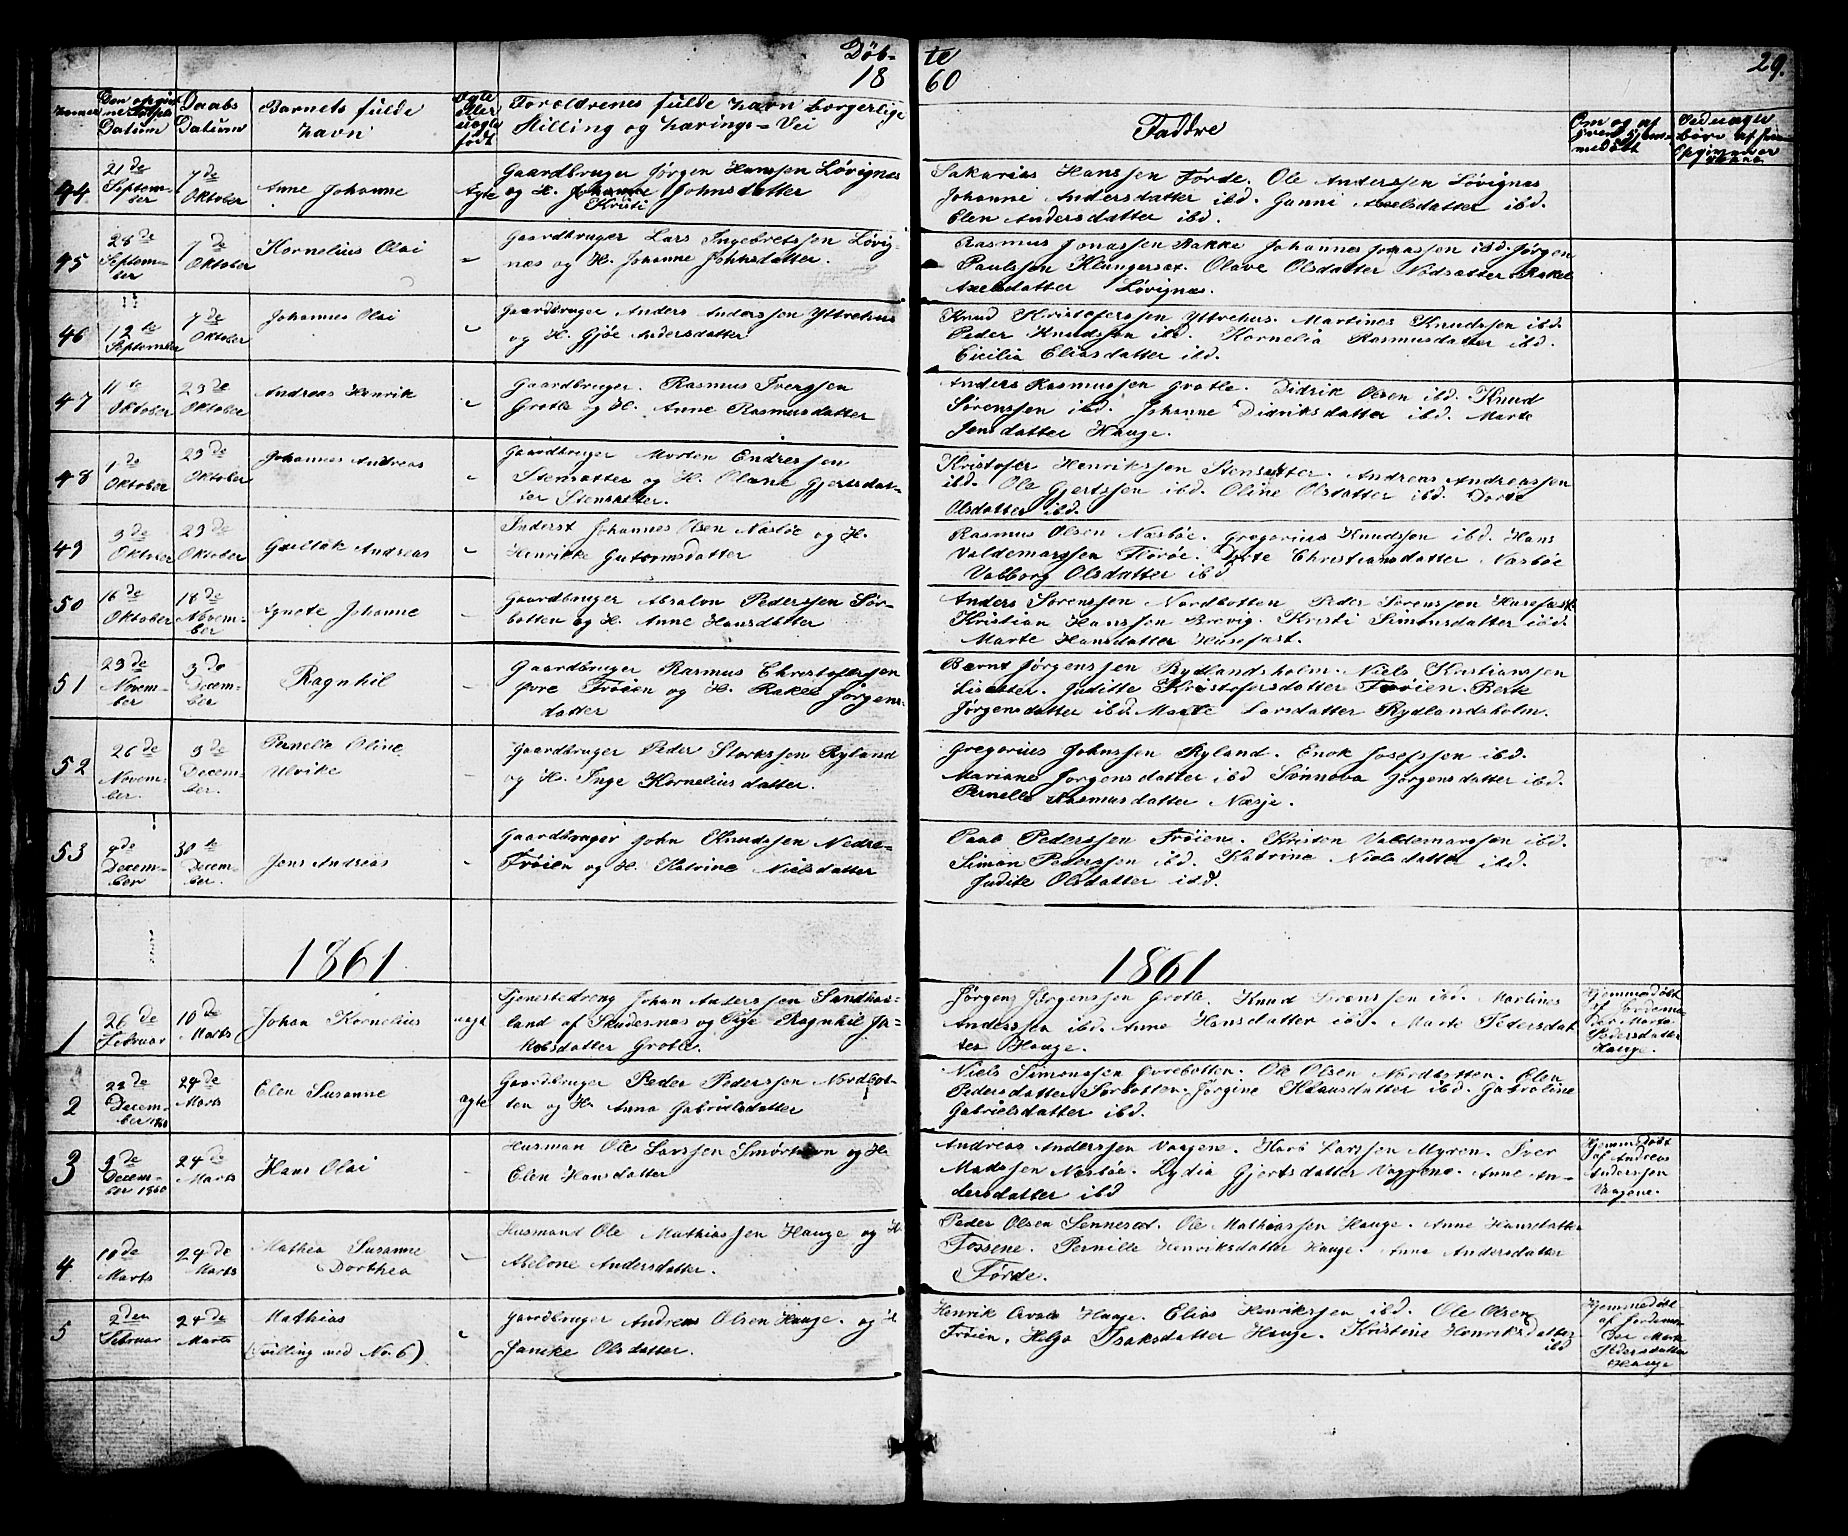 Døb-
te
18
60
29.
Barnets fulde
Navn
Daabs
Datum
Datum
Forældrenes fulde Navn borgerlige
Stilling og Nærings-Vei
Faddre
44
21de
Septem-
ber
7de
Oktober
Anne Johanne
Ægte
Gaardbruger Jørgen Hanssen Løvignæs
og H. Johanne Johnsdatter
Kristi
Sakarias Hanssen Førde. Ole Anderssen Løvignæs
Johanne Andersdatter ibd. Gunni Axelsdatter ibd.
Elen Andersdatter ibd.
45
Septem-
ber
7de
Oktober
Kornelius Olai
Gaardbruger Lars Ingebretssen Løvig-
næs og H. Johanne Johnsdatter.
Rasmus Jonassen Bakke Johannes Jonassen ibd. Jørgen
Paulssen Klungersæt. Olave Olsdatter Rakel
Axelsdatter Løvignæs.
46
12te
September
7de
Oktober
Johannes Olai
Gaardbruger Anders Anderssen Yttrehus
og H. Gjøe Andersdatter
Knud Kristoferssen Yttrehus. Martines Knudssen ibd.
Peder Knudssen ibd. Kornelia Rasmusdatter ibd.
Cicilia Eliasdatter ibd.
47
11te
Oktober
23de
Oktober
Andreas Henrik
Gaardbruger. Rasmus Iverssen
Grotle og H. Anne Rasmusdatter
Anders Rasmussen Grotle. Didrik Olsen ibd. Knud
Sørenssen ibd. Johanne Didriksdatter ibd. Marte
Jensdatter Hauge.
48
1de
Oktober
23de
Oktober
Johannes Andreas
Gaardbruger Morten Endressen
Stensætter og H. Oliane Gjertsdat-
ter Stensætter.
Kristofer Henrikssen Stensætter. Andreas Andreassen
ibd. Ole Gjertssen ibd. Oline Olsdatter ibd. Dorte
Olsdatter ibd.
49
3de
Oktober
23de
Oktober
Andreas
Inderst Johannes Olsen Næsbøe og H.
Henrikke Guttormsdatter
Rasmus Olsen Næsbøe. Gregorius Knudssen ibd. Hans
Valdemarssen Florøe. Dorte Christiansdatter Næsbøe
Valborg Olsdatter ibd
50
16de
Oktober
18de
Novem-
ber
Agnete Johanne
Gaardbruger Absalon Pederssen Sør-
botten og H. Anne Hansdatter
Anders Sørenssen Nordbotten Peder Sørenssen Husefast
Kristian Hanssen Brevig. Kristi Simonsdatter ibd.
Marte Hansdatter Husefast.
51
23de
Novem-
ber
3de
Decem-
ber
Ragnhil
Gaardbruger Rasmus Christofferssen
Øvre Frøien og H. Rakel Jørgens-
datter
Bernt Jørgenssen Rydlandsholm. Niels Kristianssen
Lisæter. Juditte Kristofersdatter Frøien. Berte
Jørgensdatter ibd. Marte Larsdatter Rydlandsholm.
52
26de
Novem-
ber
3de
Decem-
ber.
Pernelle Oline
Ulrike
Gaardbruger Peder Storkssen Ryland
og H. Inge Korneliusdatter.
Gregorius Johnssen Ryland. Enok Josefssen ibd.
Mariane Jørgensdatter ibd Sønnova Jørgensdatter ibd.
Pernelle Rasmusdatter Næsje.
53
4de
Decem-
ber
30te
Decem-
ber.
Jens Andreas
Gaardbruger John Knudssen Nedre-
Frøien og H. Katrine Nielsdatter
Paal Pederssen Frøien. Kristen Valdemarssen ibd.
Simon Pederssen ibd. Katrina Nielsdatter ibd.
Judite Olsdatter ibd.
1861
1861
1
26de
Februar
10de
Marts
Johan Kornelius
uægt
Tjenestedreng Johan Anderssen Sandhas-
land af Skudesnæs og Pige Ragnhil Ja-
kobsdatter Grotle.
Jørgen Jørgenssen Grotle. Knud Sørenssen ibd. Martines
Anderssen ibd. Anne Hansdatter ibd. Marte Pedersdat
ter Hauge.
Hjemmedøbt
af Jordemo
der Marte
Pedersdatter
Hauge.
2
22de
Decem-
ber 1860
24de
Marts
Elen Susanne
ægte
Gaardbruger Peder Pederssen Nordbot-
ten og H. Anna Gabrielsdatter
Niels Simonssen Øvrebotten. Ole Olsen Nordbotten. Elen
Pedersdatter Sørbotten. Jørgine Klausdatter ibd. Gabroline
Gabrielsdatter ibd.
3
9de
Decem-
ber 1860
24de
Marts
Hans Olai
Husman Ole Larssen Smørhavn og H
Elen Hansdatter
Andreas Anderssen Vaagene. Hans Larssen Myren. Iver
Madssen Næsbøe. Lydia Gjertsdatter Vaagene. Anne An-
dersdatter ibd
Hjemmedøbt
af Andreas
Anderssen
Vaagene.
4
10de
Marts
24de
Marts
Mathea Susanne
Dorthea
Husmand Ole Mathiassen Hauge og H
Abelone Andersdatter.
Peder Olsen Sennesæt. Ole Mathiassen Hauge. Anne Hansdatter
Fossene. Pernille Henriksdatter Hauge. Anna Andersdatter
Førde.
5
2den
Februar
24de
Marts
Mathias
(Tvilling med No. 6)
Gaardbruger Andreas Olsen Hauge. og H
Janike Olsdatter.
Henrik Hauge. Elias Henrikssen ibd. Ole Olsen
Frøien. Helga Isaksdatter Hauge. Kristine Henriksdatter
ibd
Hjemmedøbt
af Jordemo
der Marte
Pedersdatter
Hauge